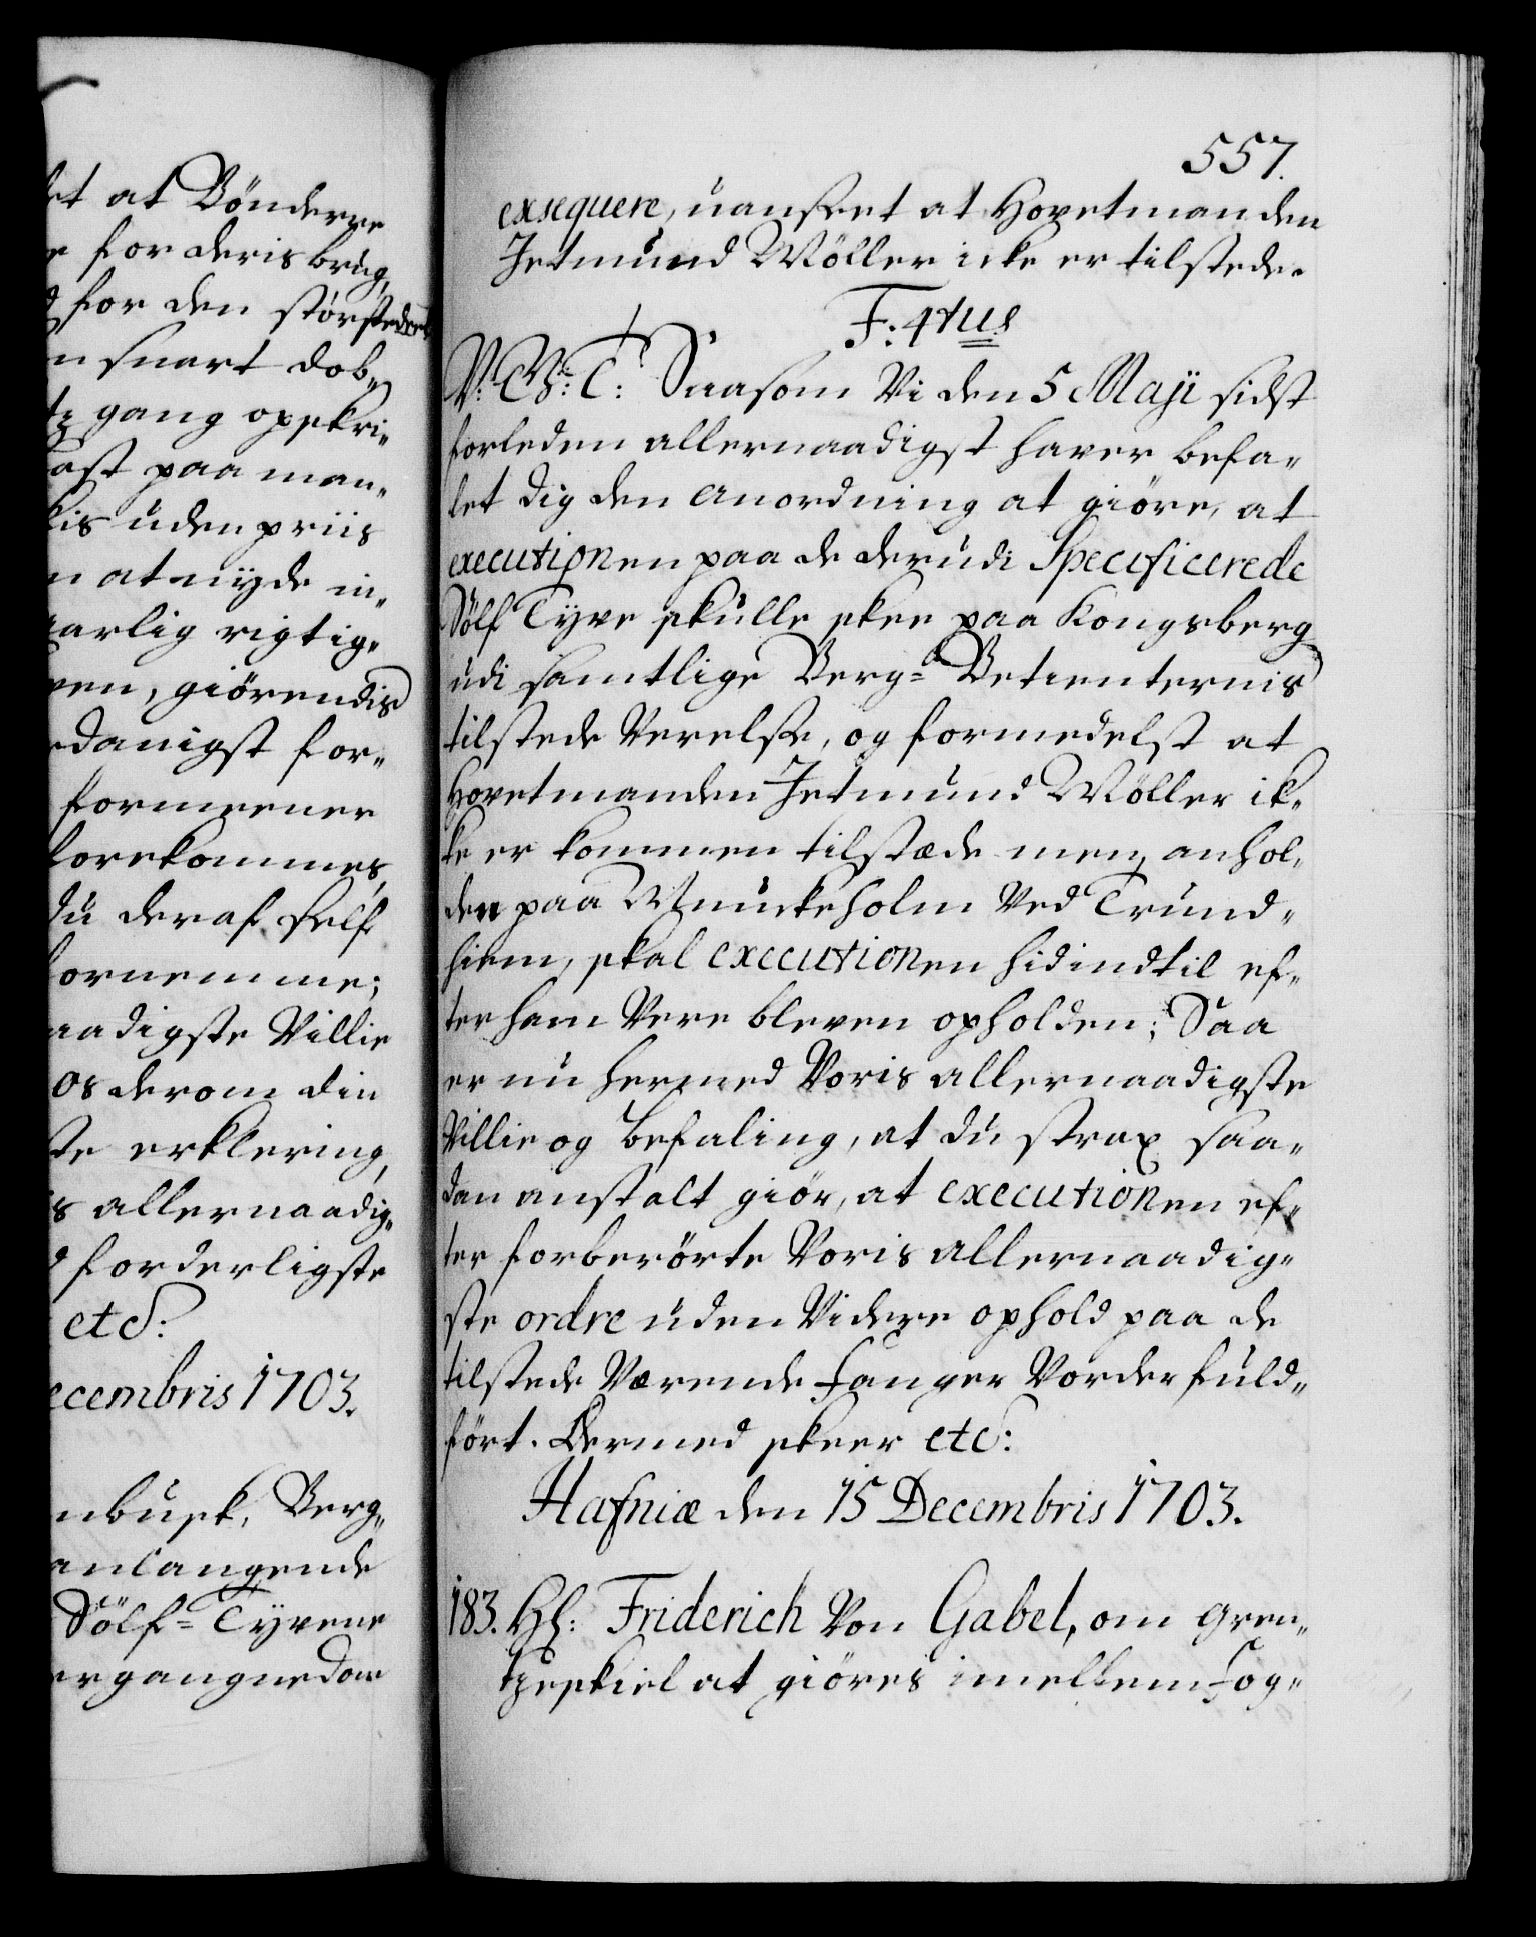 et at Bönderne
e for deris brug,
d for den störstedeel
n snart dob-
tz gang opskri-
ast paa man-
kis uden priis
n at nyde in-
aarlig rigtig-
ven, giörendis
rdanigst for-
formeener
forekommes,
du deraf self
fornemme;
aadigste Villie
os derom din
ste erklering,
s allernaadig-
d forderligste
etc:
ecembris 1703.
nbusk, Berg-
anlangende
Sölf-Tyvene
ergangne dom
557.
exsequere, uanseet at Hovetmanden
Jetmund Möller icke er tilstede.
F: 4tus
V. G: T: Saasom Vi den 5 Maji sidst
forleden allernaadigst haver befa-
let dig den anordning at giöre, at
executionen paa de derudi Specificerede
Sölf Tyve skulle skee paa Kongsberg
udi samtlige Berg-Betienternis
tilstede Verelse, og formedelst at
Hovetmanden Jetmund Möller ik-
ke er kommen tilstæde men anhol-
den paa Munckeholm Ved Trund-
hiem, skal executionen hidindtil ef-
ter ham Vere bleven opholden; Saa
er nu hermed Voris allernaadigste
Villie og befaling, at du strax saa-
dan anstalt giör, at executionen ef-
ter forberörte Voris allernaadig-
ste ordre uden Videre ophold paa de
tilstede Værende Fanger Vorder fuld-
fört. Dermed skeer etc:
Hafniæ den 15 Decembris 1703.
183. Hl: Friderich Von Gabel, om Gren-
tzeskiel at giöres imellem Fog-